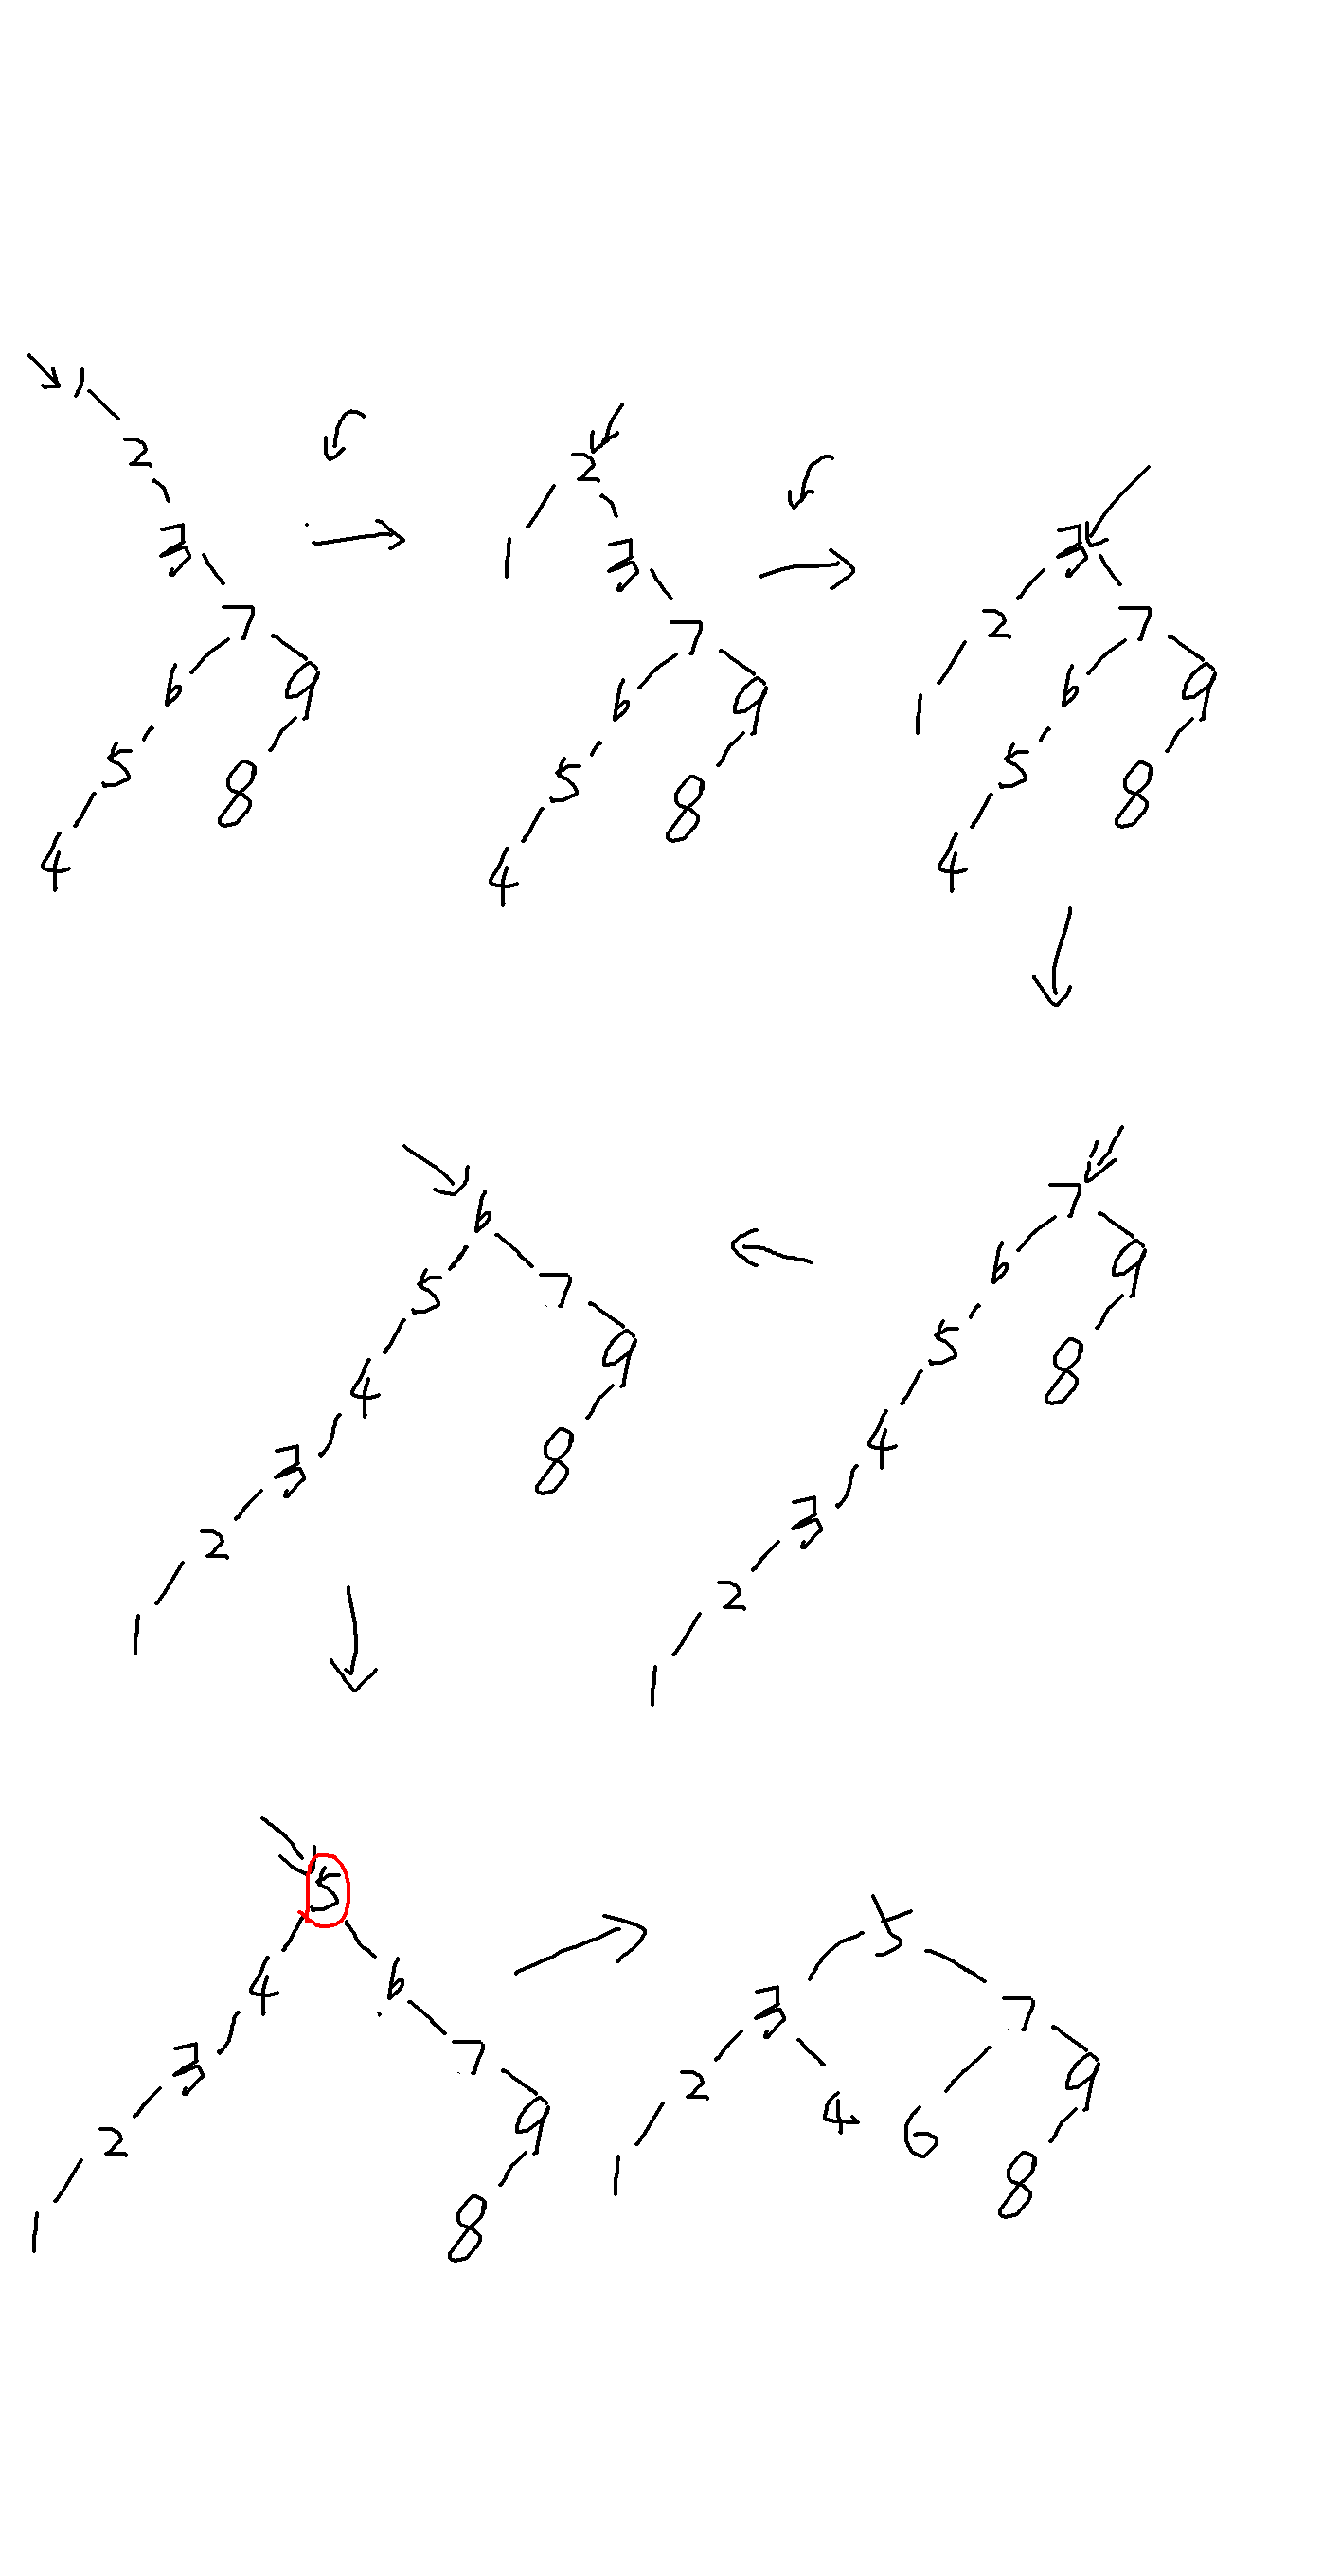 1
2
3
7
6 9
5 8
4
2
1 3
7
6 9
5 8
4
3
2 7
1 6 9
5 8
4
7
6 9
5 8
4
3
2
1
6
5 7
4 9
3 8
2
1
5
4 6
3 7
2 9
1 8
5
3 7
2 4 6 9
1 8